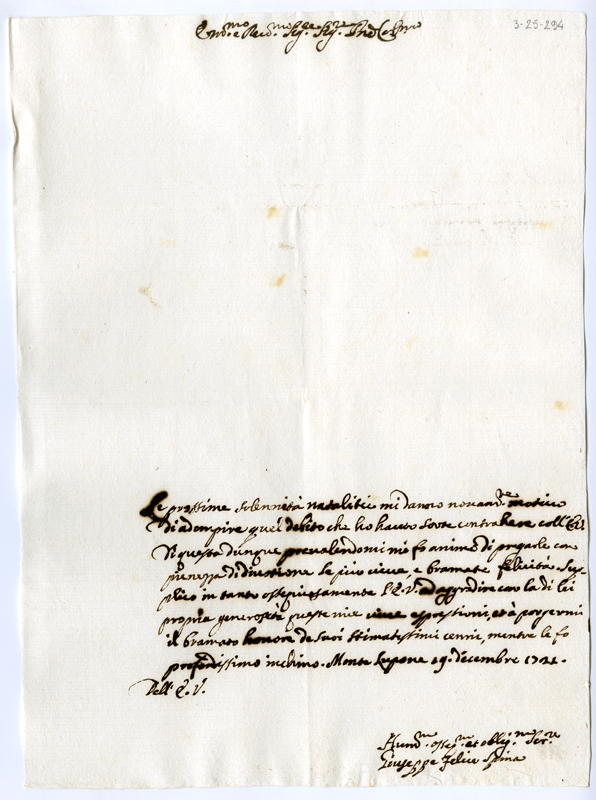 3-25-294
Em.mo e Rev.mo Sig.re Sig.re P.ron Col.mo
Le prossime solennità natalitie mi danno novam.te motivo
di adempire quel debito che hò hauto sorte contrahere coll'E.V.
Di questa dunque prevalendomi mi fo animo di pregarle con
pienezza di divotione le più vive e bramate felicità. Sup-
plico in tanto ossequiosamente l'E.V. ad aggradire con la di lei
propria generosità queste mie vive espressioni, et à porgermi
il bramato honore de suoi stimatissimi cenni, mentre le fo
profondissimo inchino. Monte Lupone 19. decembre 1721.
Dell' E.V.
Hum.mo osseq.mo et oblig.mo Ser.re
Giuseppe Felice Spina